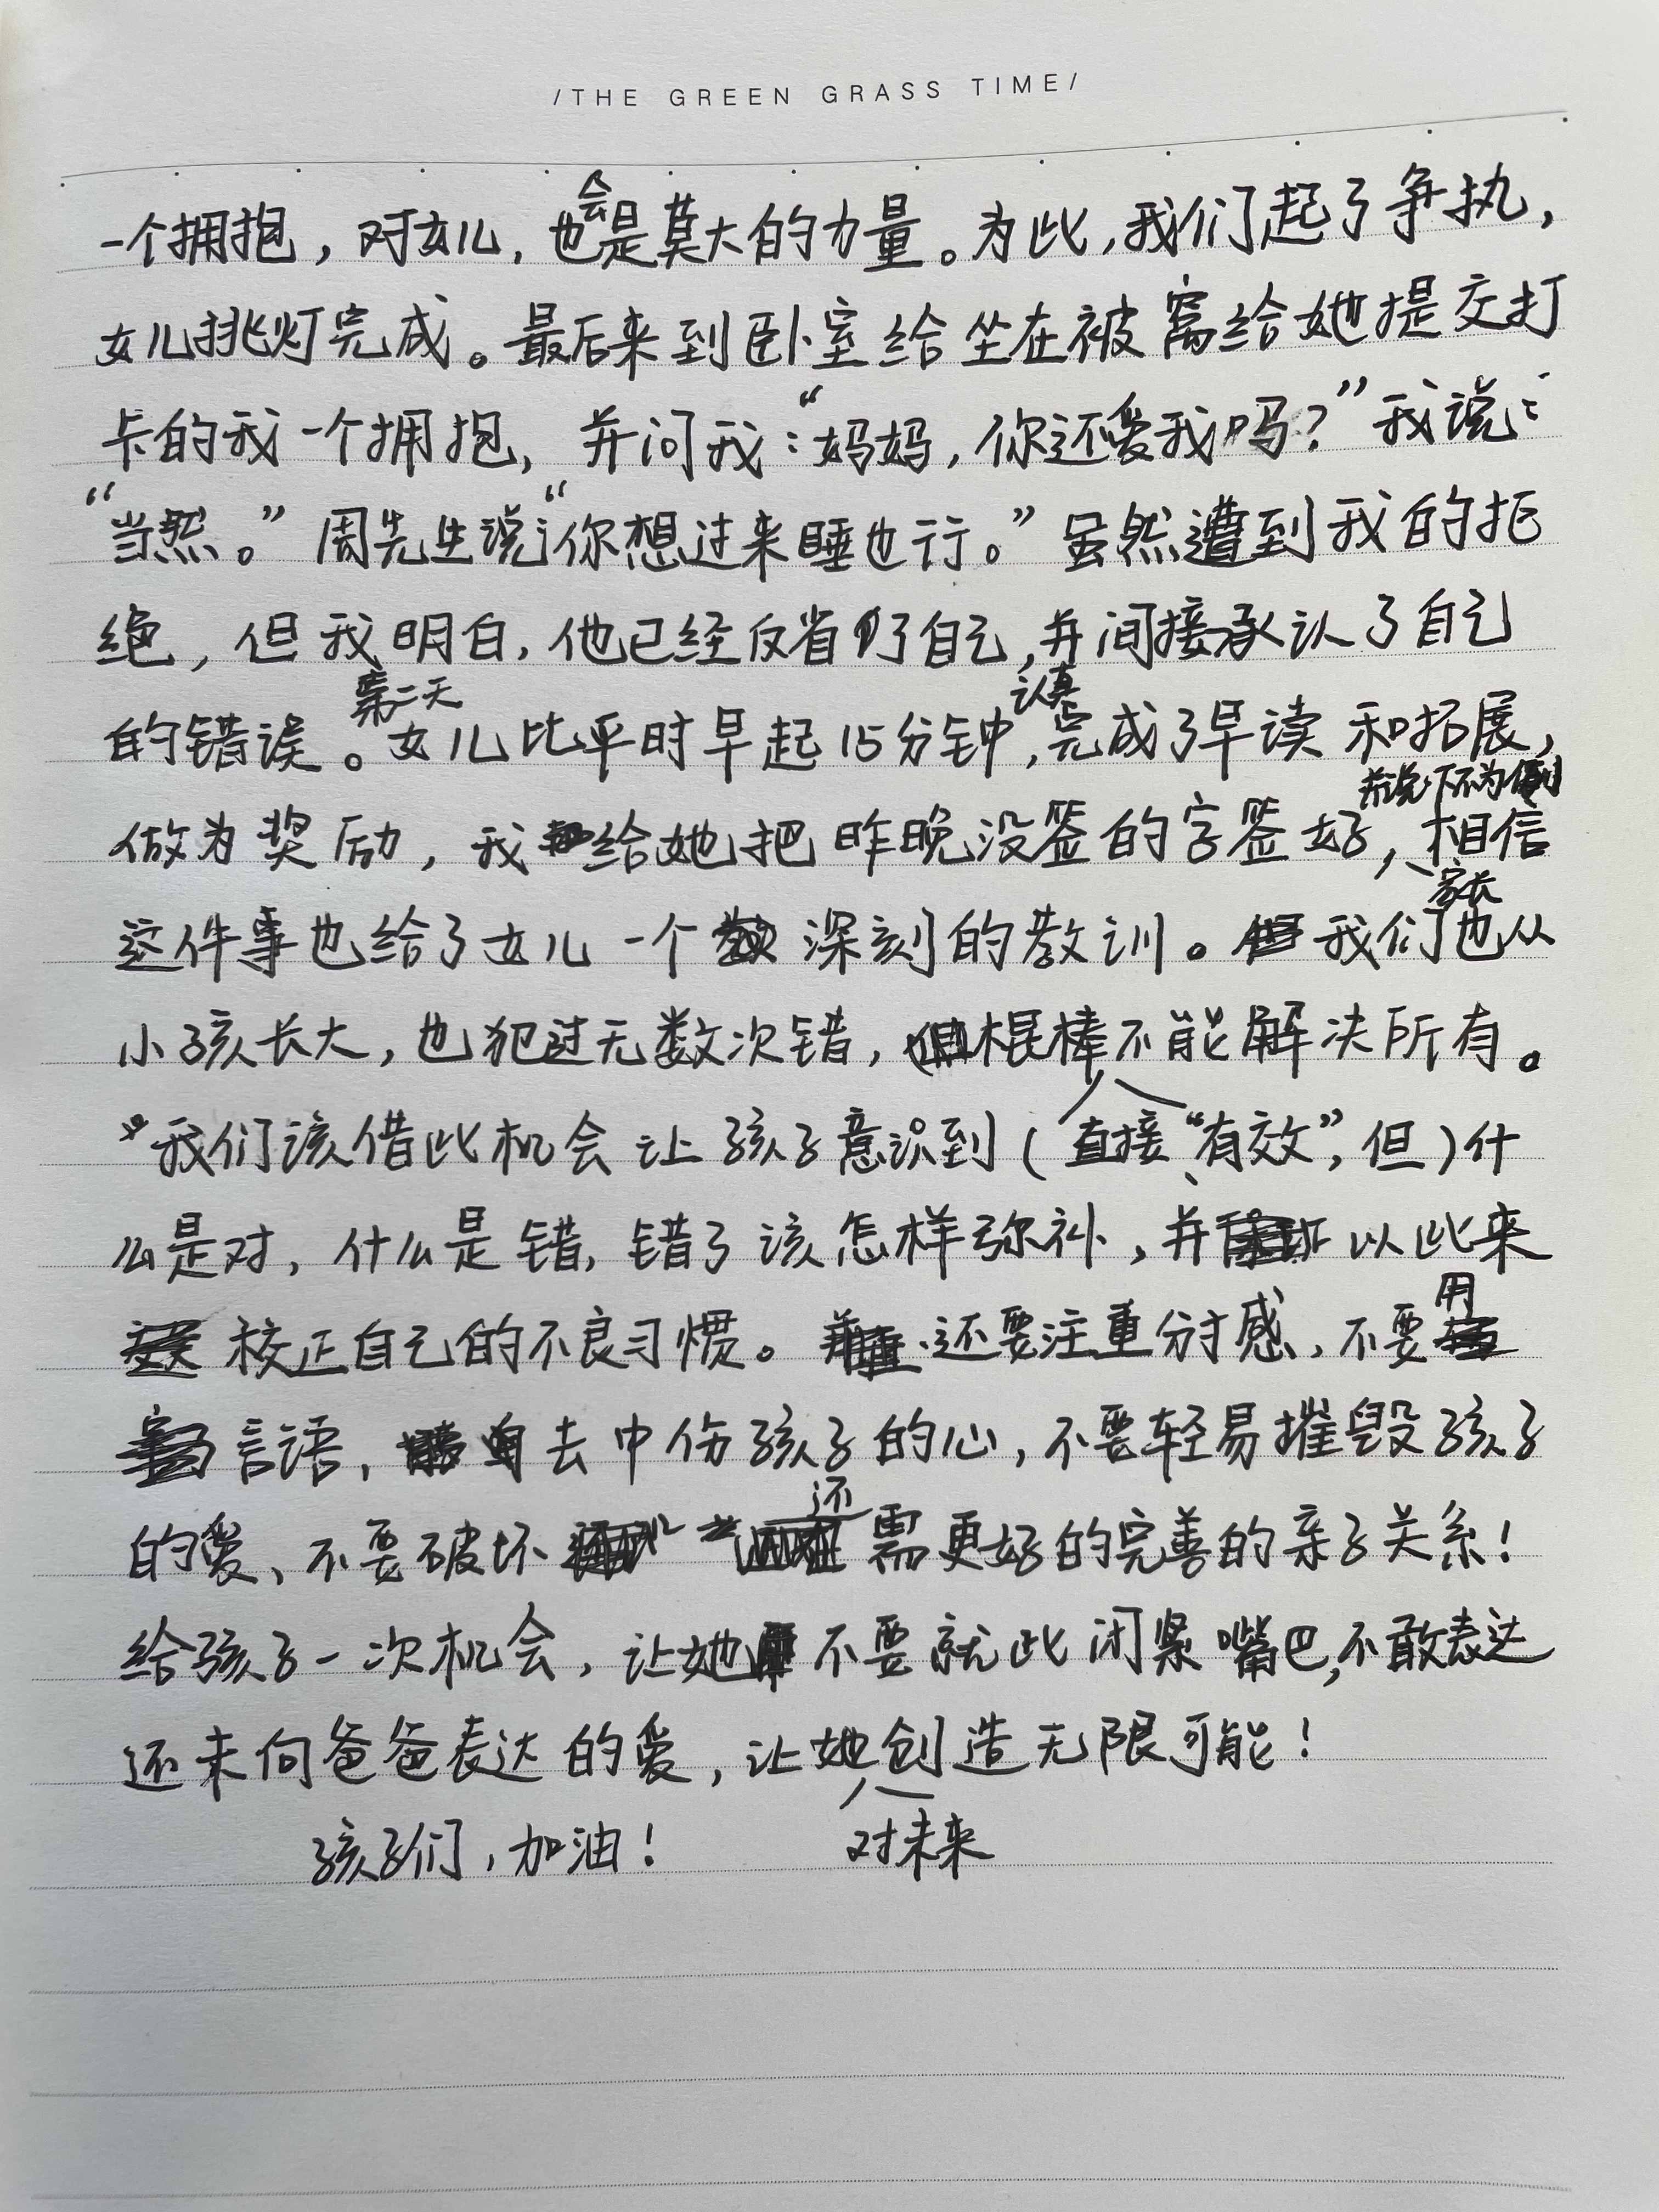 /THE GREEN GRASS TIME/
一个拥抱，对女儿，也会是莫大的力量。为此，我们起了争执，
女儿挑灯完成。最后来到卧室给坐在被窝给她提交打
卡的我一个拥抱，并问我：“妈妈，你还爱我吗？”我说：
“当然。”周先生说：“你想过来睡也行。”虽然遭到我的拒
绝，但我明白，他已经反省了自己，并间接承认了自己
的错误。第二天女儿比平时早起15分钟，认真完成了早读和拓展，
做为奖励，我给她把昨晚没签的字签好，并说下不为例，相信
这件事也给了女儿一个深刻的教训。我们家长也从
小孩长大，也犯过无数次错，棍棒不能解决所有。
我们该借此机会让孩子意识到（直接“有效”，但）什
么是对，什么是错，错了该怎样弥补，并以此来
校正自己的不良习惯。还要注重分寸感，不要用
言语，去中伤孩子的心，不要轻易摧毁孩子
的爱、不要破坏还需更好的完善的亲子关系！
给孩子一次机会，让她不要就此闭紧嘴巴，不敢表达
还未向爸爸表达的爱，让她创造无限可能！
孩子们，加油！
对未来